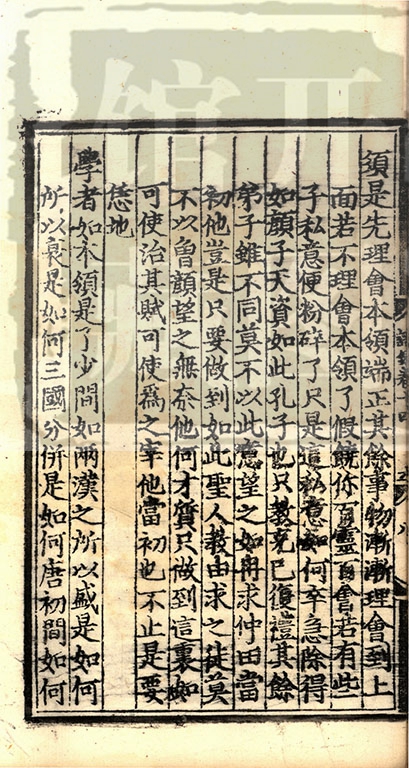 須是先理會本領端正其餘事物漸漸理會到上
面若不理會本領了假饒你百靈百會若有些
子私意便粉碎了只是這私意如何卒急除得
如顏子天資如此孔子也只教克己復禮其餘
弟子雖不同莫不以此意望之如冉求仲由當
初他豈是只要做到如此聖人教由求之徒莫
不以曾顏望之無奈他何才質只做到這裏如
可使治其賦可使爲之宰他當初也不止是要
恁地
學者如本領是了少間如兩漢之所以盛是如何
所以衰是如何三國分併是如何唐初間如何